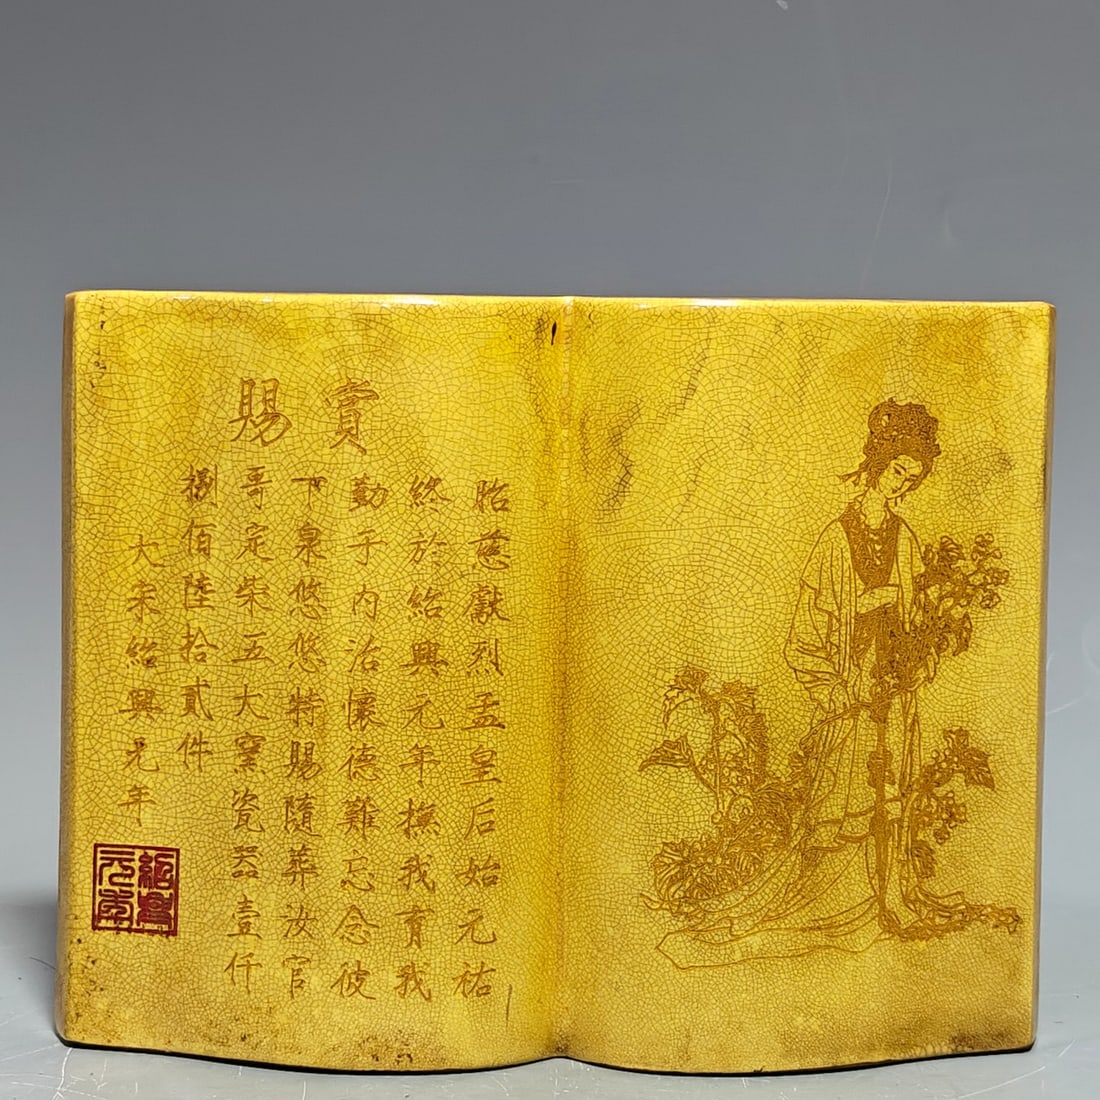 賞賜
昭慈獻烈孟皇后始元祐
終於紹興元年撫我育我
勤于内治懷德難忘念彼
下泉悠悠特賜隨葬汝官
哥定柴五大窯瓷器壹仟
捌佰陸拾貳件
大宋紹興元年
紹興元年